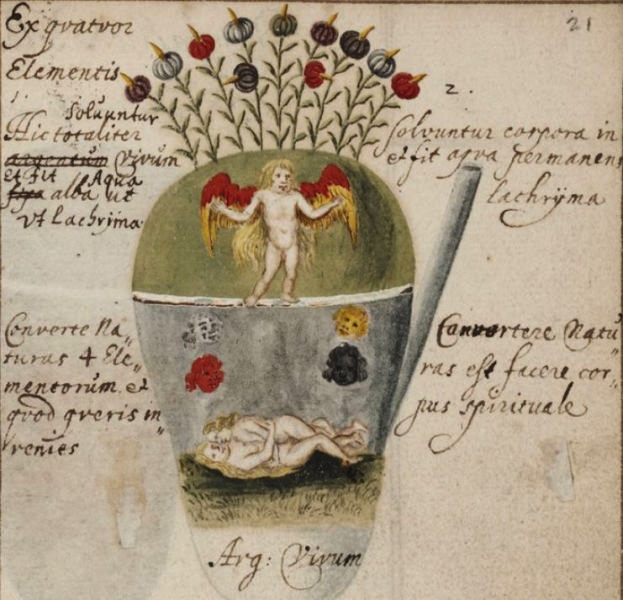 21
Ex qvatvor
Elementis
1.
solvuntur
Hic totaliter
argentum Vivum
et fit Aqua
alba ut
vt lachrijma
2.
Solvuntur corpora in
et fit aqva permanens
lachrijma
Converte Na„
turas 4 Ele„
mentorum et
qvod qveris in„
venies
Convertere Natu„
ras est facere cor„
pus spirituale
Arg: Vivum